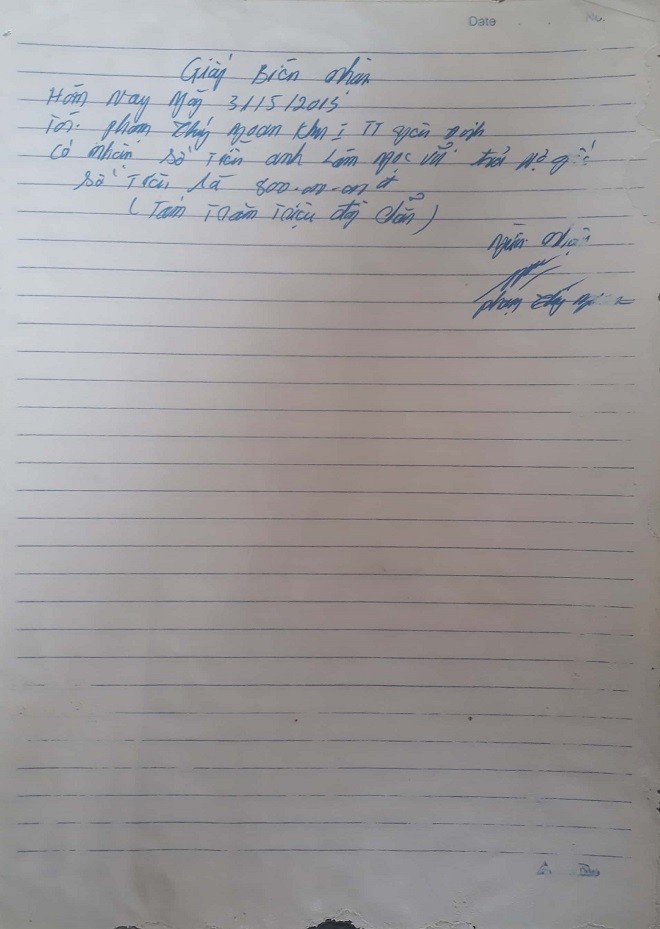 Date
Giấy Biên nhận
Hôm nay ngày 31/5/2015
Tôi: Phạm Thúy Ngoan khu I TT
Có nhận số tiền anh Lâm Ngọc Vũ trả nợ gốc
Số tiền là 800.000.000đ
(Tám trăm triệu đồng chẵn)
Người nhận
Phạm Thúy